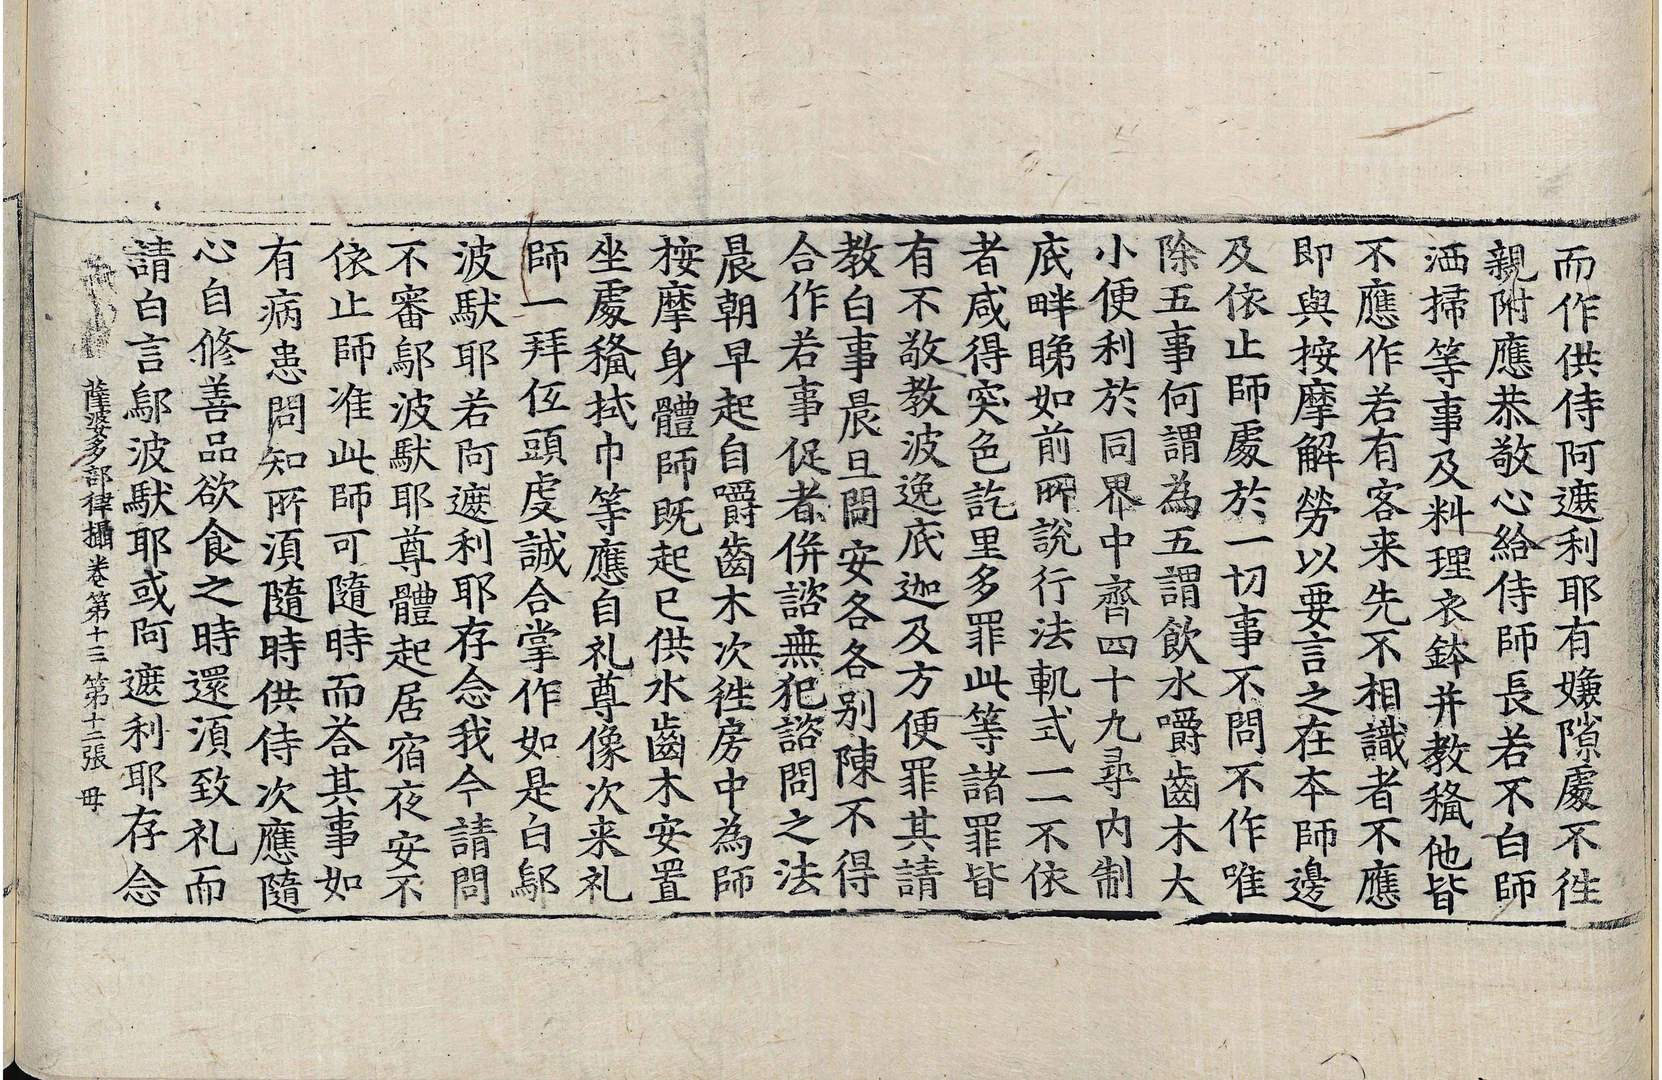 而作供侍阿遮利耶有嫌隙處不徃
親附應恭敬心給侍師長若不白師
洒掃等事及料理衣鉢并教穐他皆
不應作若有客来先不相識者不應
即與按摩解勞以要言之在本師邊
及依止師處於一切事不問不作唯
除五事何謂為五謂飲水嚼齒木大
小便利於同界中齊四十九尋內制
底畔睇如前所說行法軌式一一不依
者咸得突色訖里多罪此等諸罪皆
有不敬教波逸底迦及方便罪其請
教白事晨旦問安各各別陳不得
合作若事促者併諮無犯諮問之法
晨朝早起自嚼齒木次徃房中為師
按摩身體師既起已供水齒木安置
坐處穐拭巾等應自礼尊像次来礼
師一拜伍頭虔誠合掌作如是白鄔
波馱耶若阿遮利耶存念我今請問
不審鄔波馱耶尊體起居宿夜安不
依止師准此師可隨時而荅其事如
有病患問知所湏隨時供侍次應隨
心自修善品欲食之時還湏致礼而
請白言鄔波馱耶或阿遮利耶存念
薩婆多部律攝卷第十三 第十二張 毋